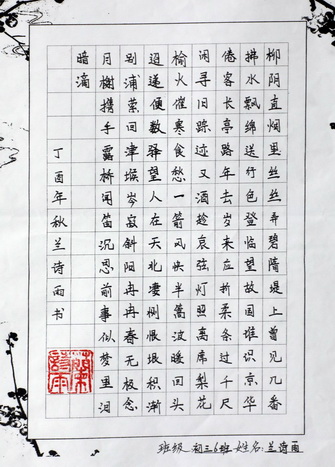 柳阴直烟里丝丝弄碧隋堤上曾见几番
拂水飘绵送行色登临望故国谁识京华
倦客长亭路年去岁来应折柔条过千尺
闲寻旧踪迹又酒趁哀弦灯照离席梨花
榆火催寒食愁一箭风快半篙波暖回头
迢递便数驿望人在天北凄恻恨堆积渐
别浦萦回津堠岑寂斜阳冉冉春无极念
月榭携手露桥闻笛沉思前事似梦里泪
暗滴
丁酉年秋兰诗雨书
班级 初三6班 姓名:兰诗雨